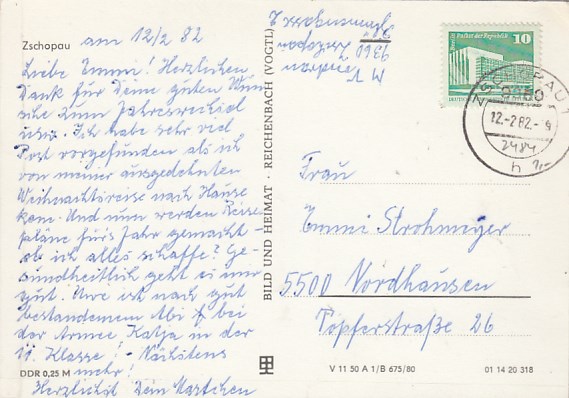 Zschopau am 12/2 82
Liebe Emmi! Herzlichen
Dank für Deine guten Wün
sche zum Jahreswechsel
usw. Ich habe sehr viel
Post vorgefunden als ich
von meiner ausgedehnten
Weihnachtsreise nach Hause
kam. Und nun werden Reise
pläne fürs Jahr gemacht -
ob ich alles schaffe? Ge-
sundheitlich geht es mir
gut. Uwe ist nach gut
bestandenem Abi bei
der Armee Katja in der
11. Klasse! Nächstens
mehr!
Herzlichst Dein
DDR 0,25 M
BILD UND HEIMAT · REICHENBACH (VOGTL)
M
9360 Zschopau
10
Palast der Republik
12.-2.82.-
h
Frau
Emmi Strohmeyer
5500 Nordhausen
Töpferstraße 26
V 11 50 A 1/B 675/80
01 14 20 318